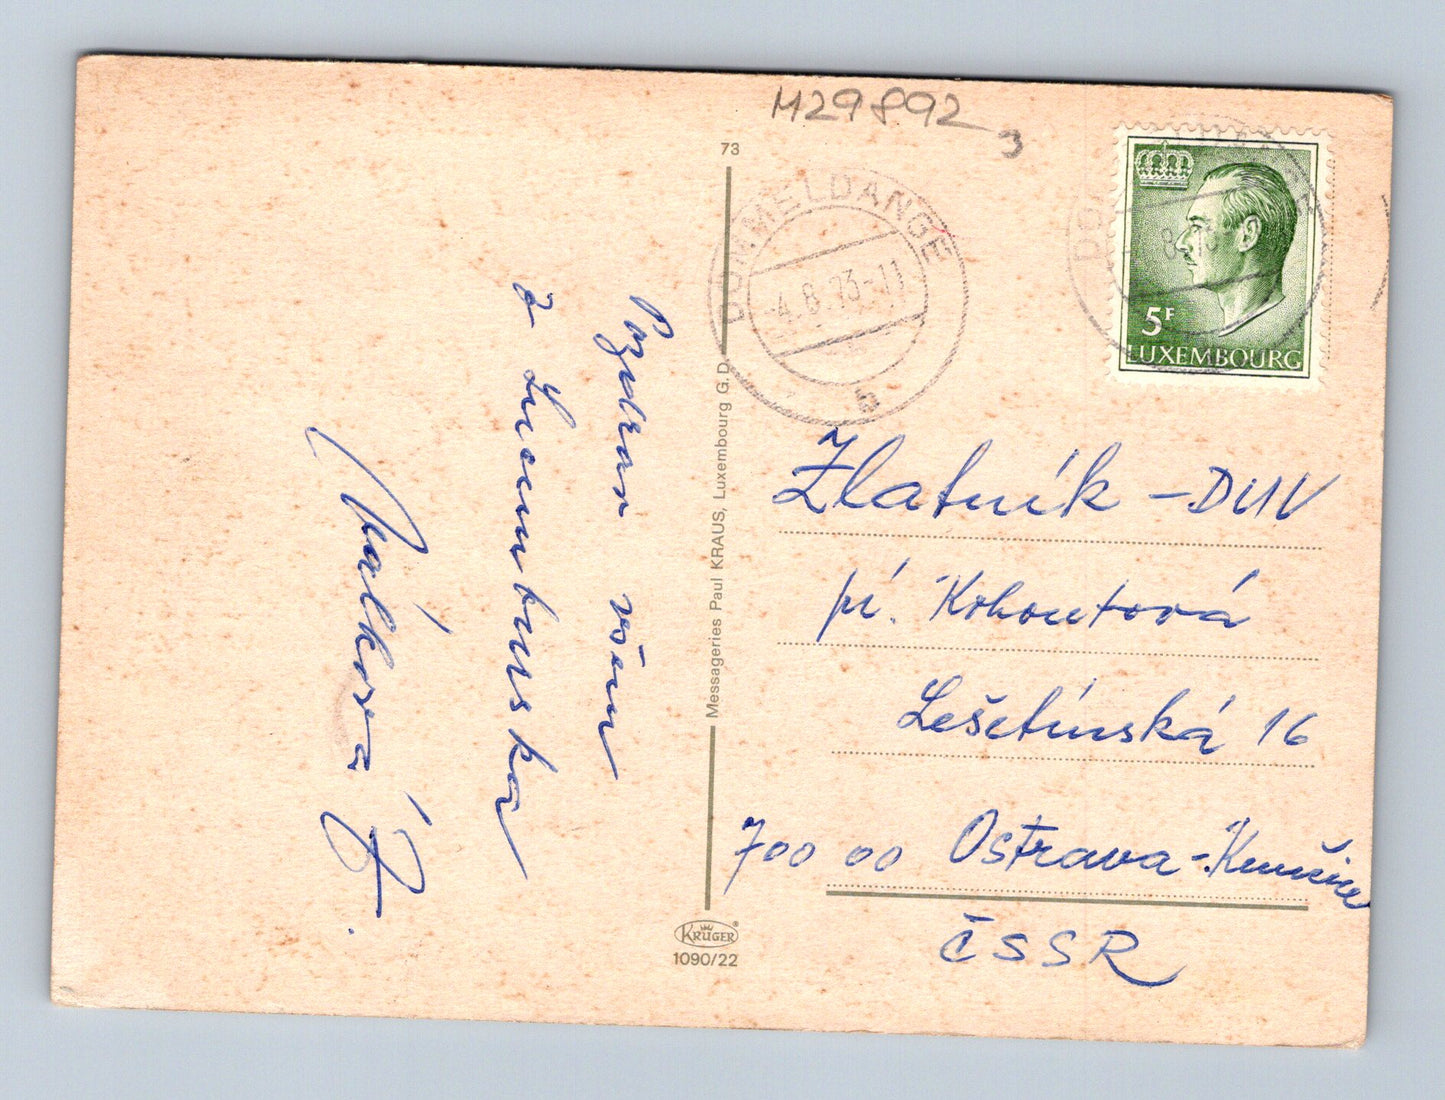 M29892
3
73
DOMMELDANGE
-4.8.73-11
b
8
5F
LUXEMBOURG
Pozdrav všem
z Lucemburska
Málková J.
Messageries Paul KRAUS, Luxembourg G.D.
Zlatník - DUV
pí. Kohoutová
Lešetínská 16
700 00 Ostrava - Kunčice
ČSSR
KRÜGER®
1090/22